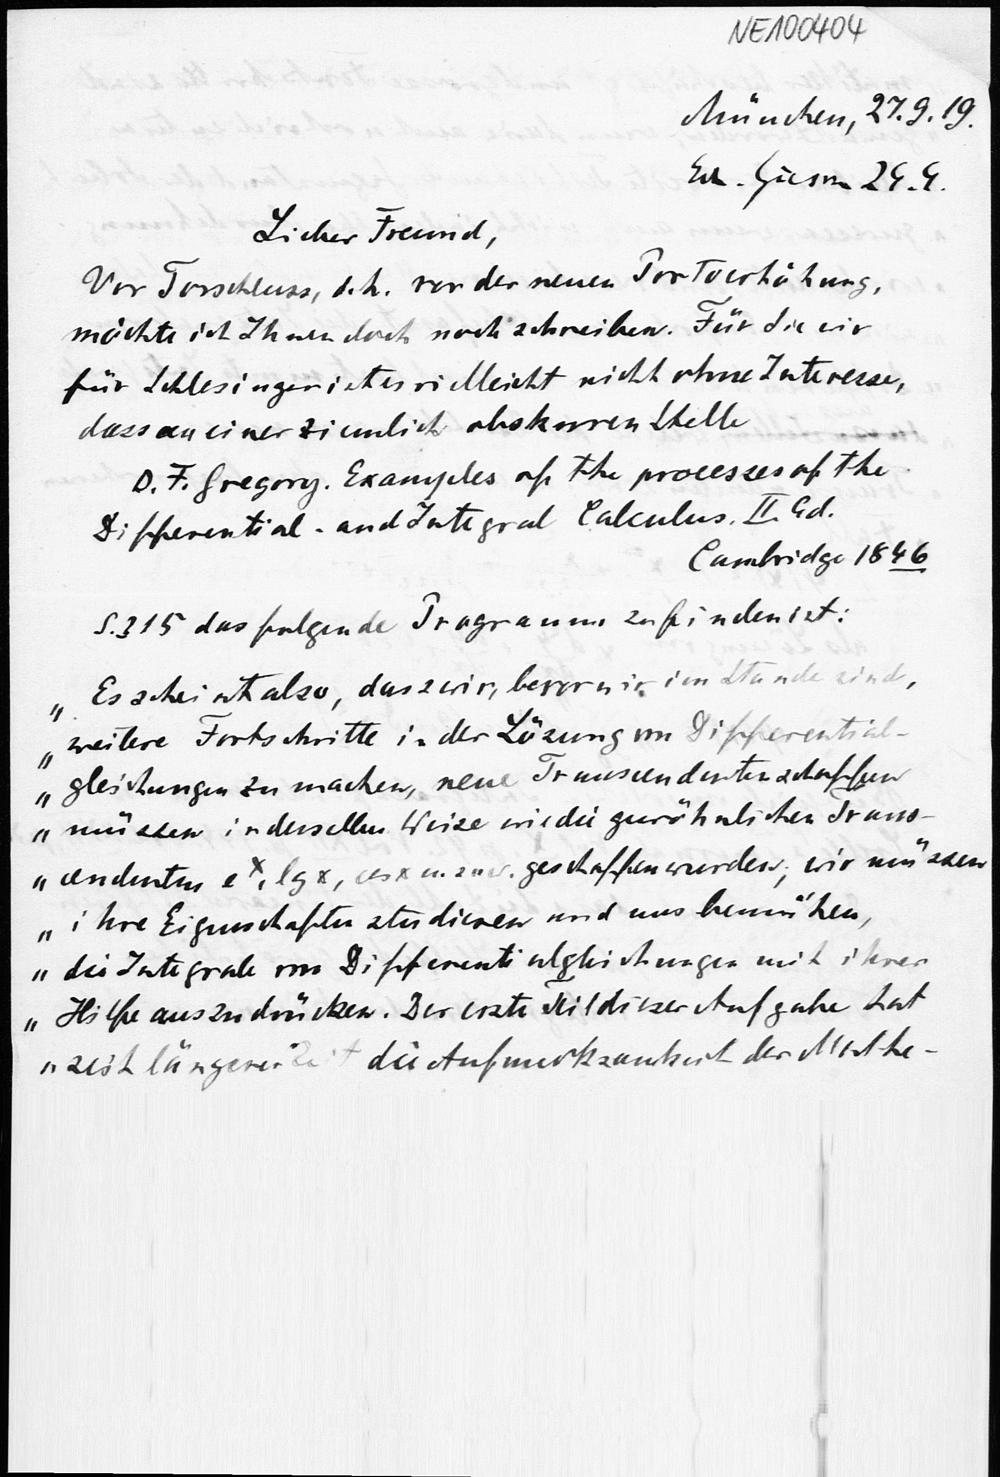 NE100404
München, 27.9.19.
Giessen 29.9.
Lieber Freund,
Vor Torschluss, d.h. vor der neuen Portoerhöhung,
möchte ich Ihnen doch noch schreiben. Für Sie wir
für Schlesinger ist es vielleicht nicht ohne Interesse,
dass an einer ziemlich obskuren Stelle
D. F. Gregory. Examples of the processes of the
Differential- and Integral Calculus. II. Ed.
Cambridge 1846
S. 315 das folgende Programm zu finden ist:
„ Es scheint also, dass wir, bevor wir im Stande sind,
„ weitere Fortschritte in der Lösung von Differential-
„ gleichungen zu machen, neue Transcendenten schaffen
„ müssen in derselben Weise wie die gewöhnlichen Trans-
„ cendenten eˣ, lg x, cos x u.s.w. geschaffen wurden; wir müssen
„ ihre Eigenschaften studieren und uns bemühen,
„ die Integrale von Differentialgleichungen mit ihrer
„ Hilfe auszudrücken. Der erste Teil dieser Aufgabe hat
„ seit längerer Zeit die Aufmerksamkeit der Mathe-